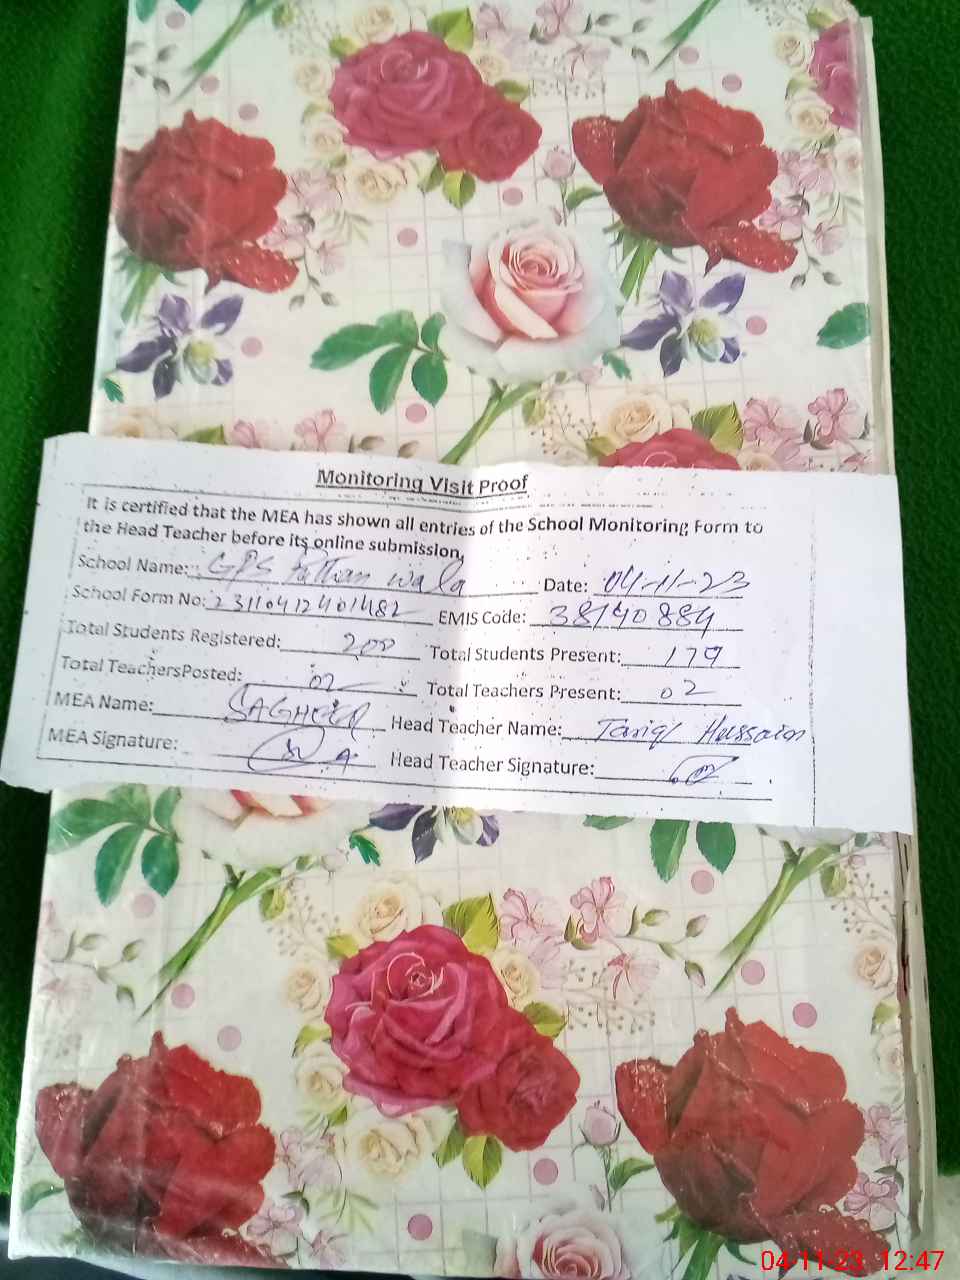 Monitoring Visit Proof
It is certified that the MEA has shown all entries of the School Monitoring Form to
the Head Teacher before its online submission,
School Name: GPS Pathan Wala Date: 04-11-23
School Form No: 23110412401482 EMIS Code: 38140884
Total Students Registered: 200 Total Students Present: 179
Total TeachersPosted: 02 Total Teachers Present: 02
MEA Name: SAGHEER Head Teacher Name: Tariq Hussain
MEA Signature: Head Teacher Signature:
04-11-23 12:47